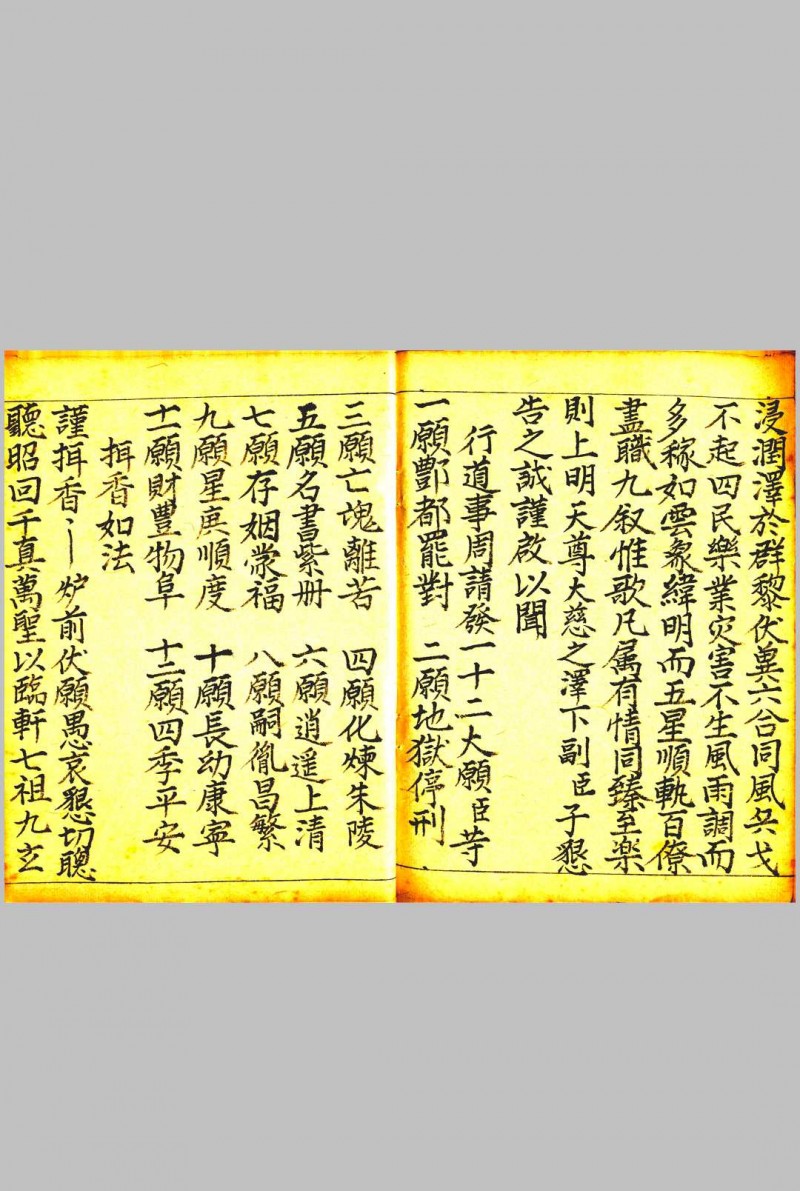 浸潤澤於群黎伏兾六合同風兵戈
不起四民樂業灾害不生風雨調而
多稼如雲象緯明而五星順軌百僚
盡職九叙惟歌凡属有情同臻至楽
則上明天尊大慈之澤下副臣子懇
告之誠謹啟以聞
行道事周請發一十二大願臣䓁
一願酆都罷對　二願地獄停刑
三願亡魂離苦　四願化煉朱陵
五願名書紫册　六願逍遥上清
七願存姻蒙福　八願嗣胤昌繁
九願星庚順度　十願長幼康寧
十一願財豊物阜　十二願四季平安
揖香如法
謹揖香〻炉前伏願愚哀懇切聰
聽昭回千真萬聖以臨軒七祖九玄